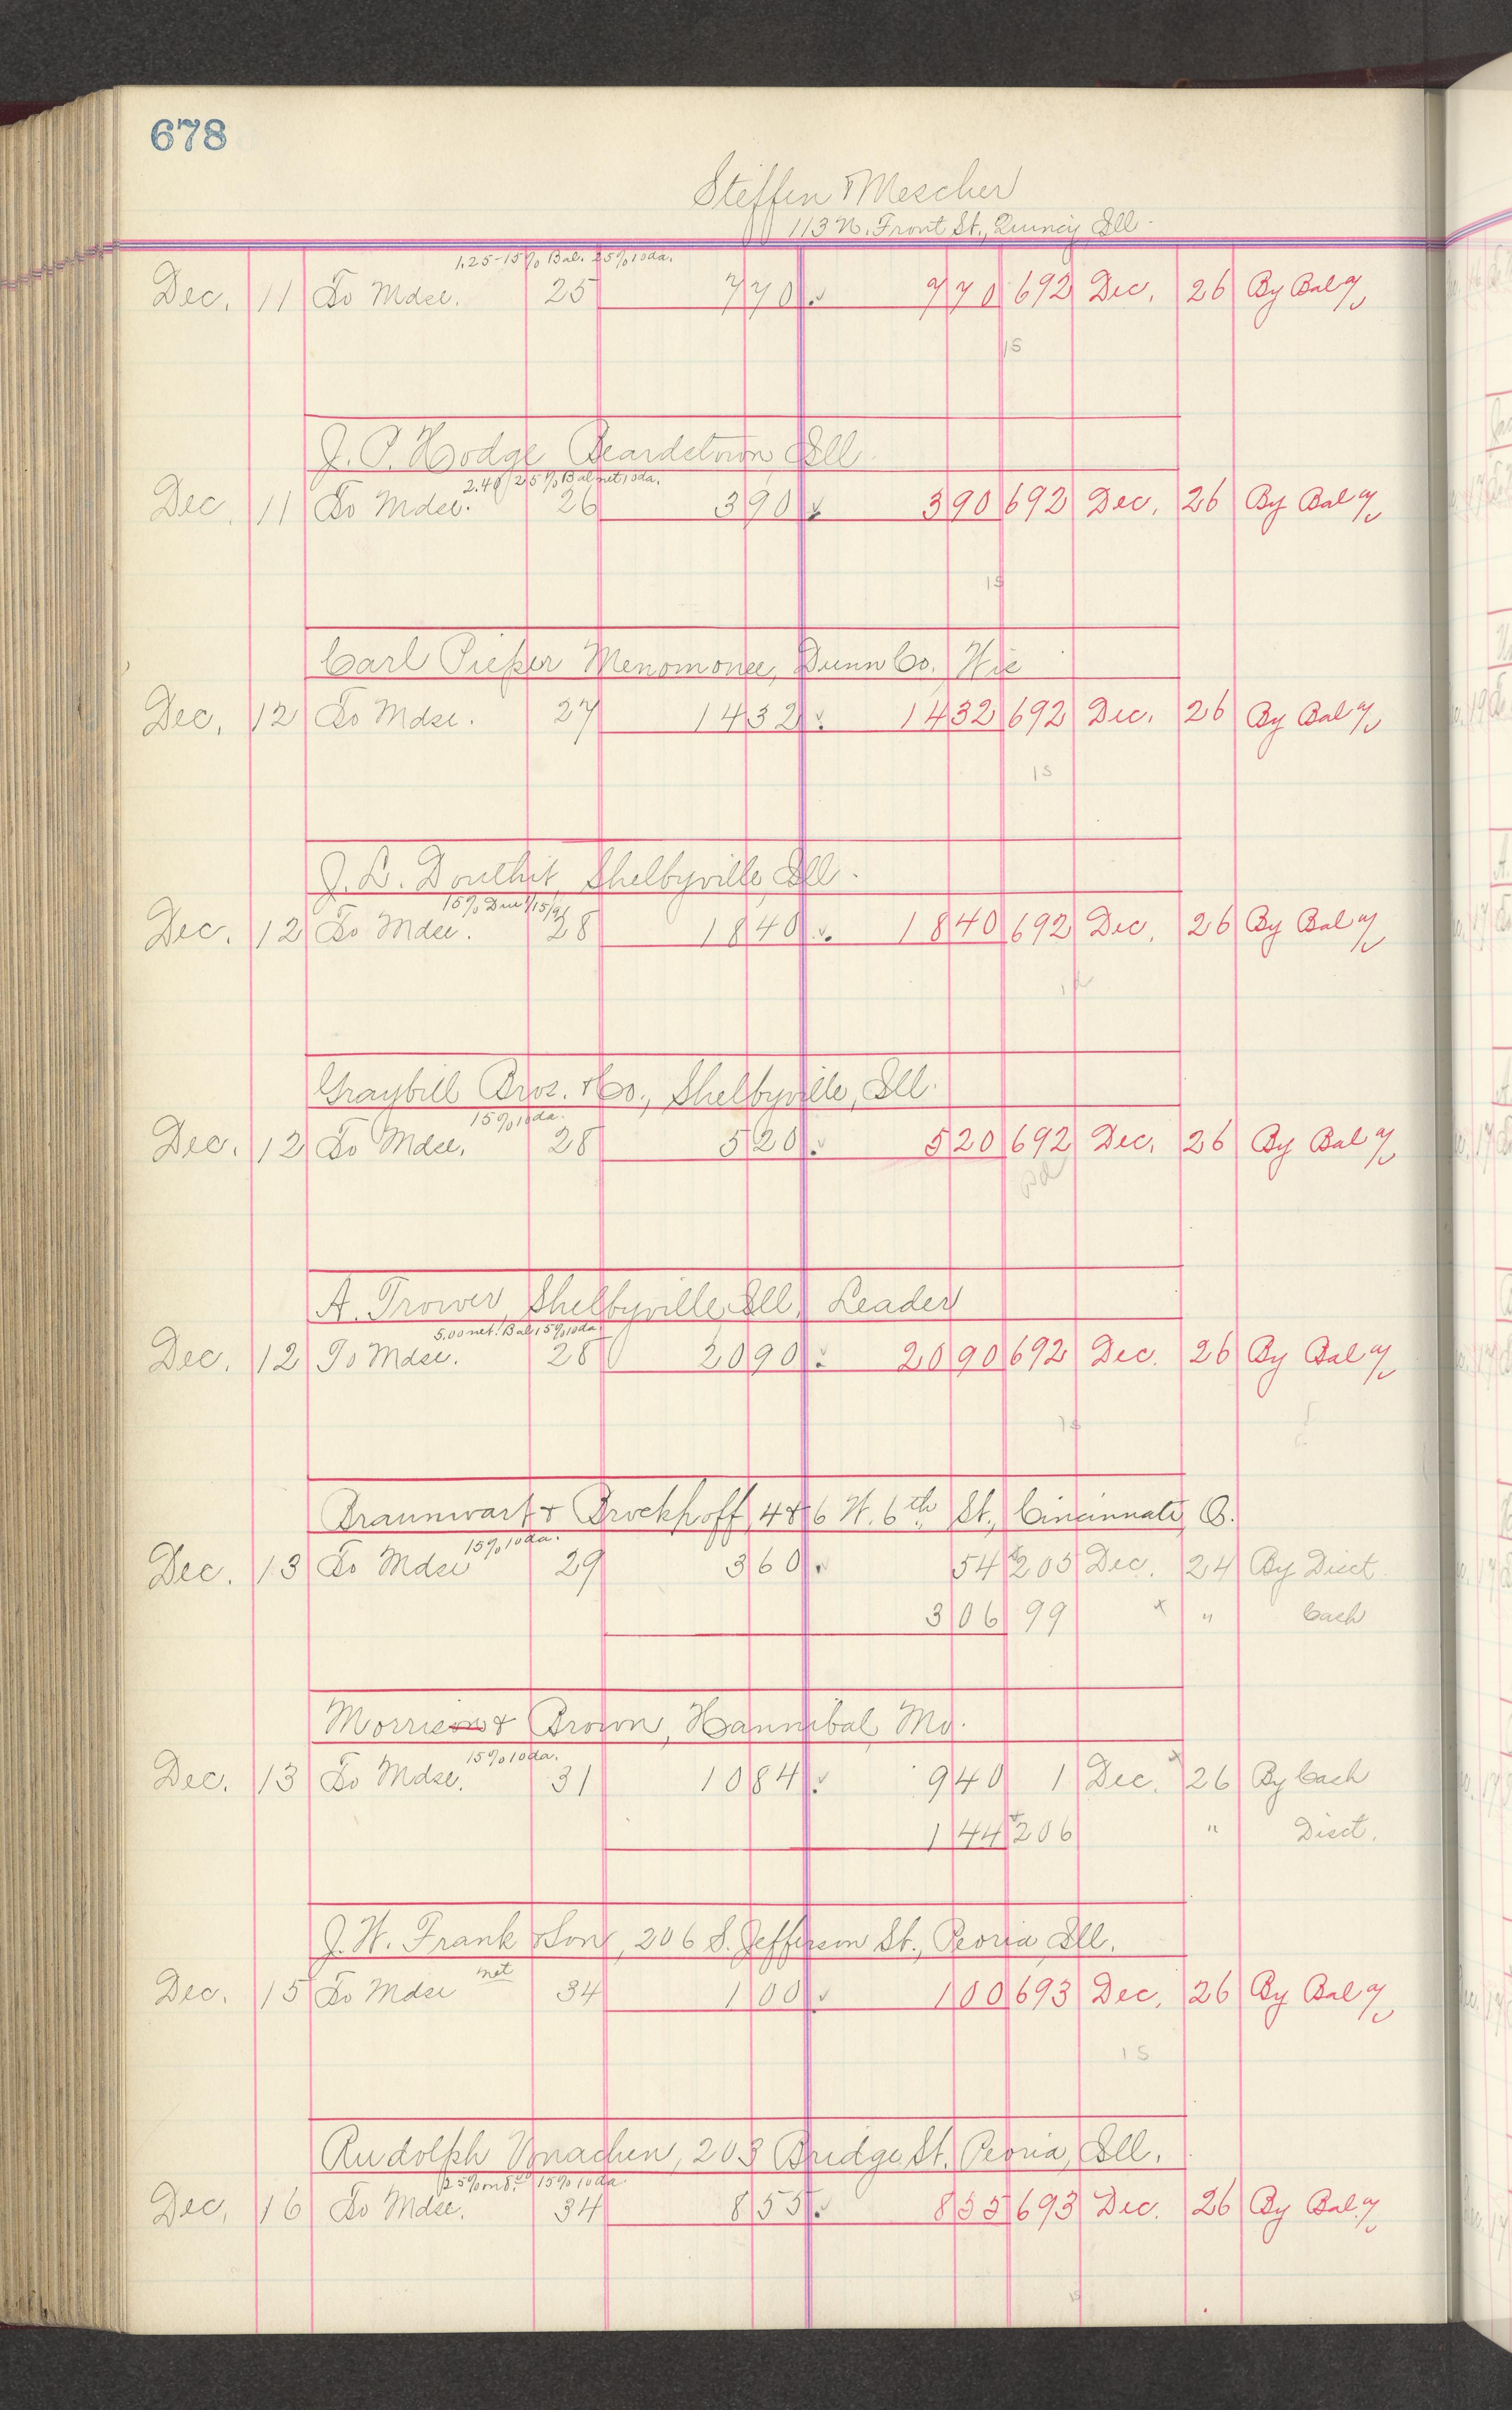 678
Steffen & Mescher
113 N. Front St., Quincy Ill.
1.25-15% Bal. 25% 10 da.
Dec. 11 To Mdse. 25 7 70 7 70 692 Dec. 26 By Bal %
15
J. P. Hodge Beardstown, Ill.
2.40/25% Bal net 10 da.
Dec. 11 To Mdse. 26 3 90 3 90 692 Dec. 26 By Bal %
15
Carl Pieper Menomonee, Dunn Co. Wis
Dec. 12 To Mdse. 27 14 32 14 32 692 Dec. 26 By Bal %
15
J. L. Douthit, Shelbyville, Ill.
15% Due 1/15/91
Dec. 12 To Mdse. 28 18 40 18 40 692 Dec. 26 By Bal %
Graybill Bros. & Co., Shelbyville, Ill.
15% 10 da.
Dec. 12 To Mdse. 28 5 20 5 20 692 Dec. 26 By Bal %
pd
A. Trower, Shelbyville, Ill. Leader
5.00 net. Bal 15% 10 da
Dec. 12 To Mdse. 28 20 90 20 90 692 Dec. 26 By Bal %
15
Braunwart & Brockhoff, 4 & 6 W. 6th St., Cincinnati, O.
15% 10 da.
Dec. 13 To Mdse 29 3 60 54 205 Dec. 24 By Disct.
3 06 99 x " Cash
Morrison & Brown, Hannibal, Mo.
15% 10 da.
Dec. 13 To Mdse. 31 10 84 9 40 1 Dec. 26 By Cash
1 44 206 " Disct.
J. W. Frank & Son, 206 S. Jefferson St., Peoria, Ill.
net
Dec. 15 To Mdse 34 1 00 1 00 693 Dec. 26 By Bal %
15
Rudolph Vonachen, 203 Bridge St. Peoria, Ill.
15% 10 da.
Dec. 16 To Mdse. 34 8 55 8 55 693 Dec. 26 By Bal. %